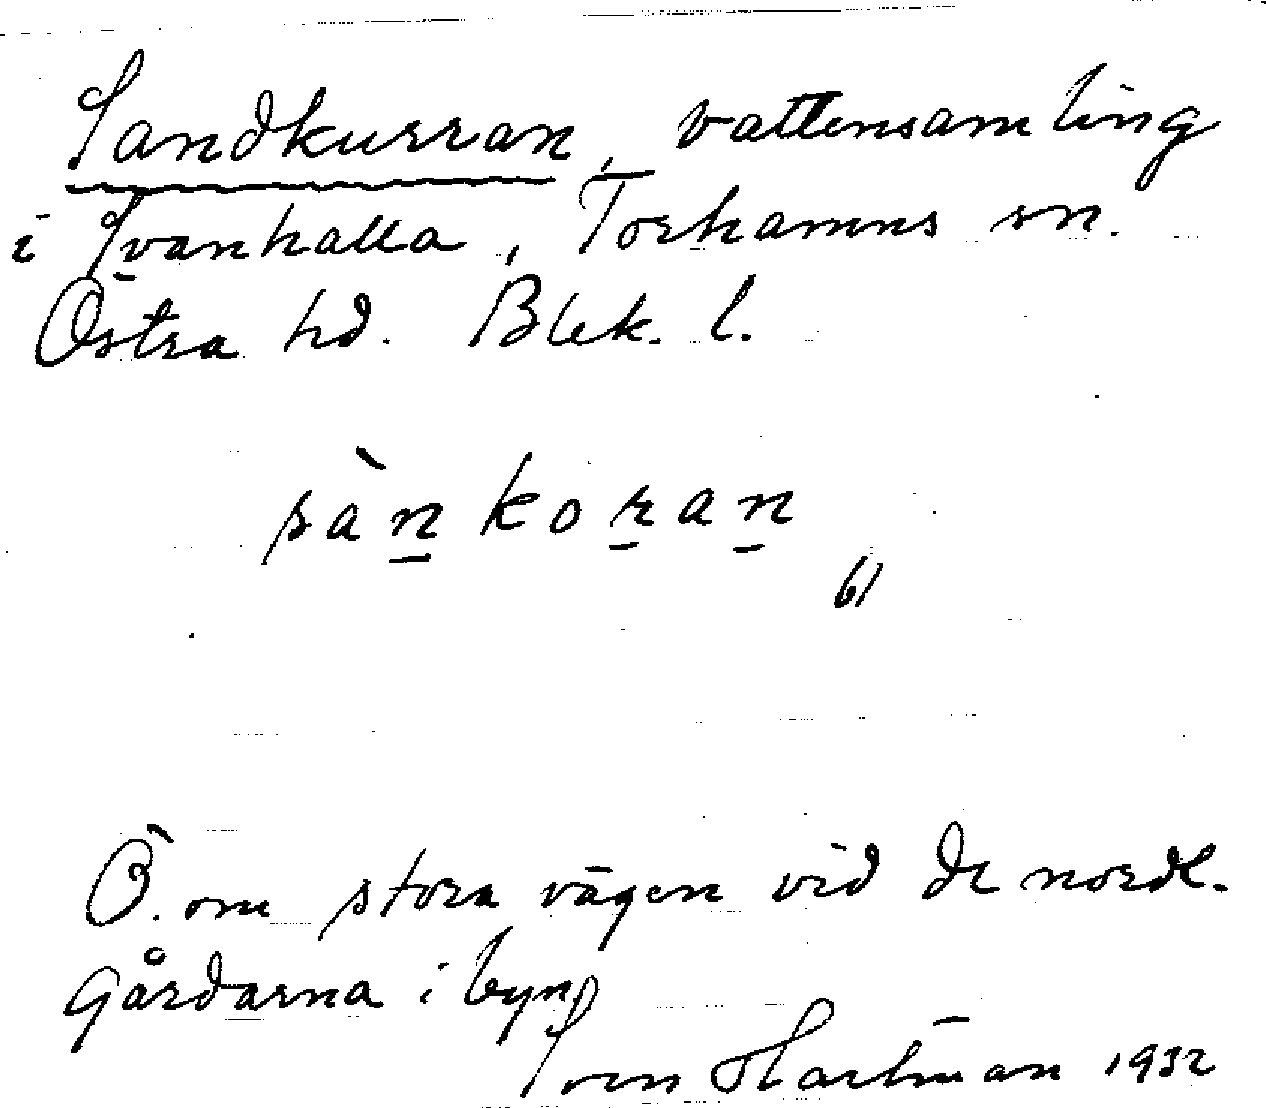 Sandkurran, vattensamling
i Svanhalla, Torhamns sn.
Östra hd. Blek. l.
sàn̲ kor̲an̲
61
Ö. om stora vägen vid de nordl.
gårdarna i byn
Sven Hartman 1932